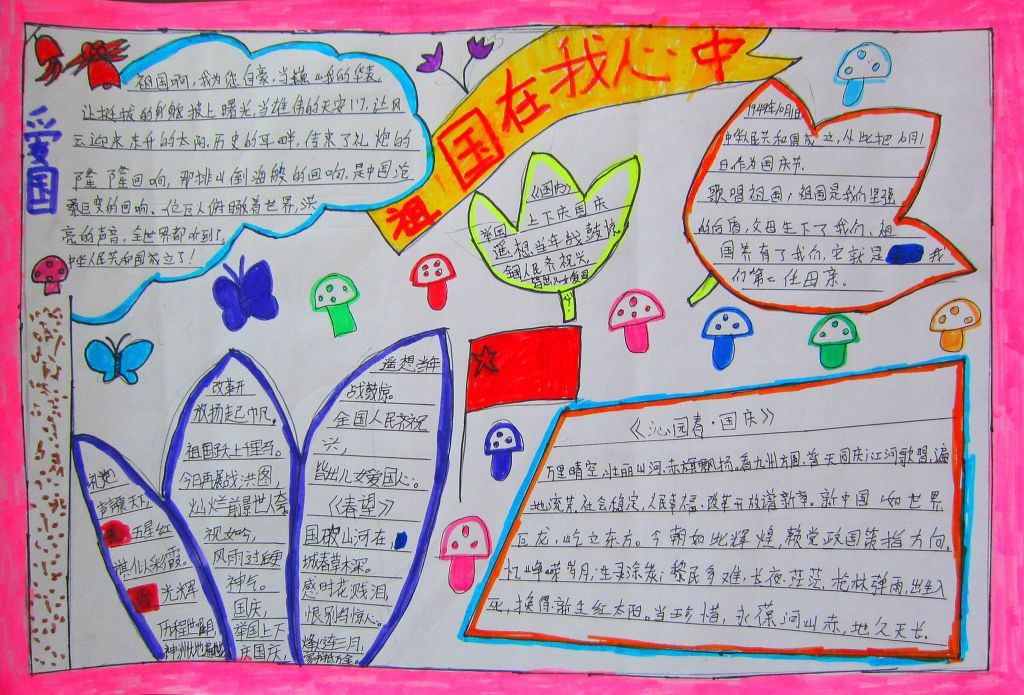 祖国在我心中
爱国
祖国啊,我为您自豪.当巍山我的脊梁,
让挺拔的身躯披上曙光,当雄伟的天安门,让风
云迎来东升的太阳,历史的耳畔,传来了礼炮的
隆隆回响,那排山倒海般的回响,是中国沧
桑巨变的回响、一位巨人俯瞰着世界,洪
亮的声音,全世界都听到了,
中华人民共和国成立了!
《国庆》
举国上下庆国庆
遥想当年战鼓惊
全国人民齐祝兴
皆出儿女爱国
1949年10月1日
中华人民共和国成立,从此把10月1
日作为国庆节.
歌唱祖国:祖国是我们坚强
的后盾,父母生下了我们,祖
国养育了我们,它就是我
们第二任母亲.
礼炮
声声震天下
五星红
旗似彩霞。
光辉
历程世瞩目
神州大地
改革开
放扬起已帆,
祖国跃上千里马。
今日再展战洪图,
灿烂前景世人夸
视如吟,
风雨过后硬
神气。
国庆,
举国上下
庆国庆,
遥想当年
战鼓惊。
全国人民齐祝
兴,
皆出儿女爱国心。
《春望》
国破山河在,
城春草木深。
感时花贱泪,
恨别鸟惊心。
烽火连三月,
家书抵万金。
《沁园春·国庆》
万里晴空,壮丽山河,赤旗飘扬。看九州方圆,普天同庆;江河歌唱,遍
地流芳.社会稳定,人民幸福,改革开放谱新章.新中国,如世界
巨龙,屹立东方。今朝如此辉煌,赖党政国策指方向,
忆峥嵘岁月;生灵涂炭;黎民多难,长夜茫茫.枪林弹雨,出生入
死,换得新生红太阳.当珍惜,永葆河山赤,地久天长.